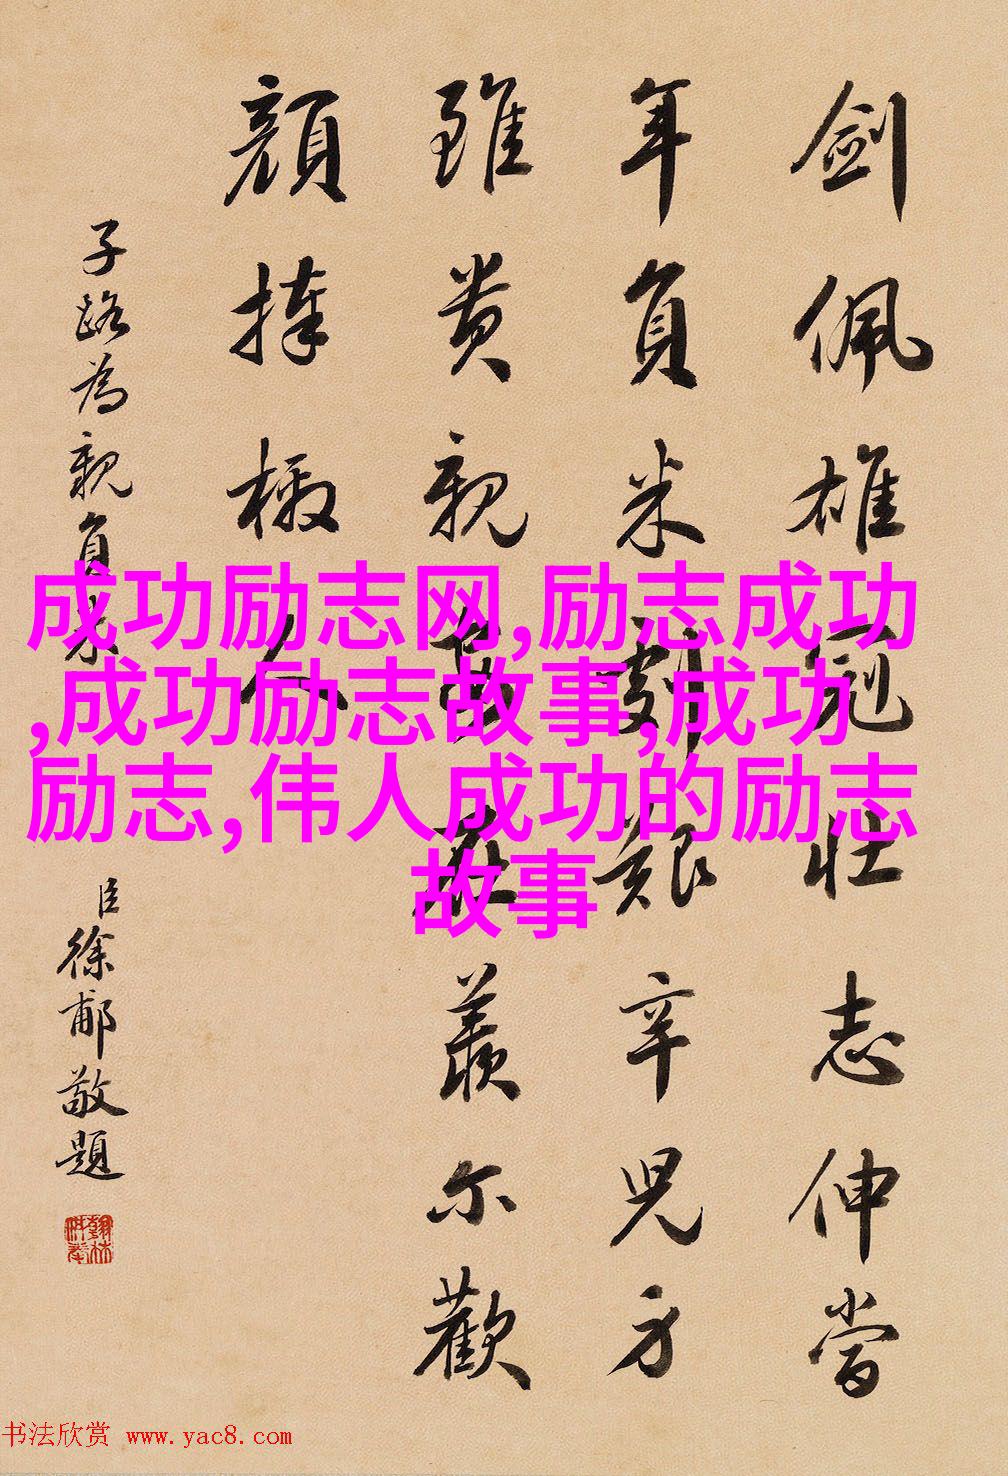 劍佩雄冠壯志伸當
年負米劇艱辛兒方
雖貴親羨尔歡
顏捧檄人
子路為親負米
臣徐郙敬題
成功励志网,励志成功
,成功励志故事,成功
励志,伟人成功的励志
故事
书法欣赏 www.yac8.com